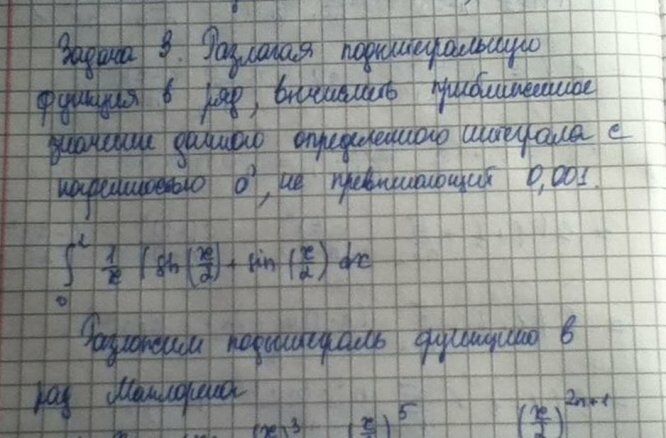 Задача 3. Разлагая подынтегральную
функция в ряд, вычислить приближенное
значение данного определенного интеграла с
погрешностью δ, не превышающий 0,001.
∫ 1/x (sh(x/2) + sin(x/2) dx
0
Разложим подынтеграль функцию в
ряд Маклорена
(x/2)^3 (x/2)^5 (x/2)^{2n+1}